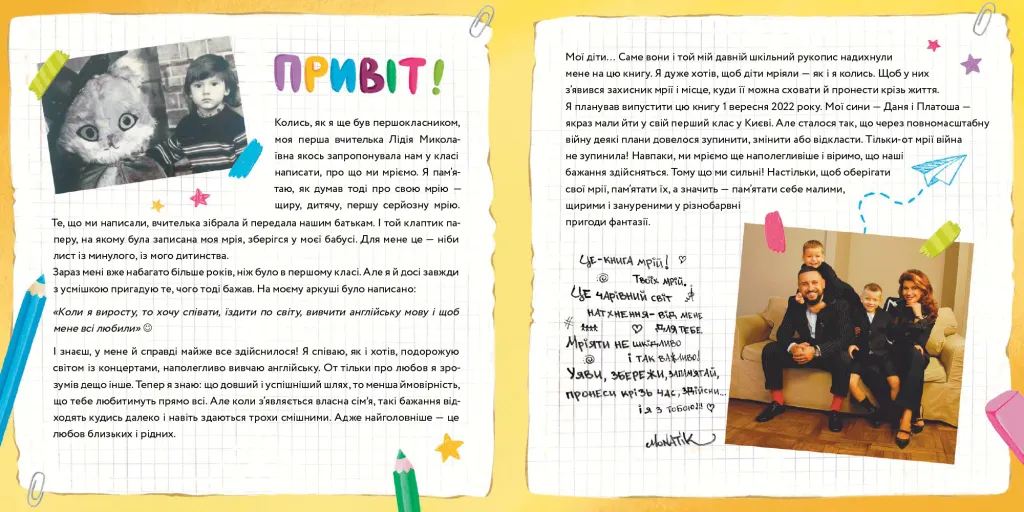 ПРИВІТ!
Колись, як я ще був першокласником,
моя перша вчителька Лідія Микола-
ївна якось запропонувала нам у класі
написати, про що ми мріємо. Я пам’я-
таю, як думав тоді про свою мрію —
щиру, дитячу, першу серйозну мрію.
Те, що ми написали, вчителька зібрала й передала нашим батькам. І той клаптик па-
перу, на якому була записана моя мрія, зберігся у моєї бабусі. Для мене це — ніби
лист із минулого, із мого дитинства.
Зараз мені вже набагато більше років, ніж було в першому класі. Але я й досі завжди
з усмішкою пригадую те, чого тоді бажав. На моєму аркуші було написано:
«Коли я виросту, то хочу співати, їздити по світу, вивчити англійську мову і щоб
мене всі любили» ☺
І знаєш, у мене й справді майже все здійснилося! Я співаю, як і хотів, подорожую
світом із концертами, наполегливо вивчаю англійську. От тільки про любов я зро-
зумів дещо інше. Тепер я знаю: що довший і успішніший шлях, то менша ймовірність,
що тебе любитимуть прямо всі. Але коли з’являється власна сім’я, такі бажання від-
ходять кудись далеко і навіть здаються трохи смішними. Адже найголовніше — це
любов близьких і рідних.
Мої діти... Саме вони і той мій давній шкільний рукопис надихнули
мене на цю книгу. Я дуже хотів, щоб діти мріяли — як і я колись. Щоб у них
з’явився захисник мрії і місце, куди її можна сховати й пронести крізь життя.
Я планував випустити цю книгу 1 вересня 2022 року. Мої сини — Даня і Платоша —
якраз мали йти у свій перший клас у Києві. Але сталося так, що через повномасштабну
війну деякі плани довелося зупинити, змінити або відкласти. Тільки-от мрії війна
не зупинила! Навпаки, ми мріємо ще наполегливіше і віримо, що наші
бажання здійсняться. Тому що ми сильні! Настільки, щоб оберігати
свої мрії, пам’ятати їх, а значить — пам’ятати себе малими,
щирими і зануреними у різнобарвні
пригоди фантазії.
ЦЕ-КНИГА МРІЙ!
ТВОЇХ МРІЙ.
ЦЕ ЧАРІВНИЙ СВІТ
НАТХНЕННЯ-ВІД МЕНЕ
ДЛЯ ТЕБЕ
МРІЯТИ НЕ ШКІДЛИВО
І ТАК ВАЖЛИВО!
УЯВИ, ЗБЕРЕЖИ, ЗАПАМ'ЯТАЙ,
ПРОНЕСИ КРІЗЬ ЧАС, ЗДІЙСНИ...
І Я З ТОБОЮ!!!
MONATIK